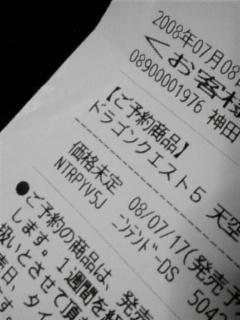 2008年07月08
＜お客様
08900001976 神田
【ご予約商品】
ドラゴンクエスト5 天空
価格未定 08/07/17(発売予
NTRPYV5J ﾆﾝﾃﾝﾄﾞｰDS 5047
●ご予約の商品は、発売
します。1週間を
扱いとさせて頂